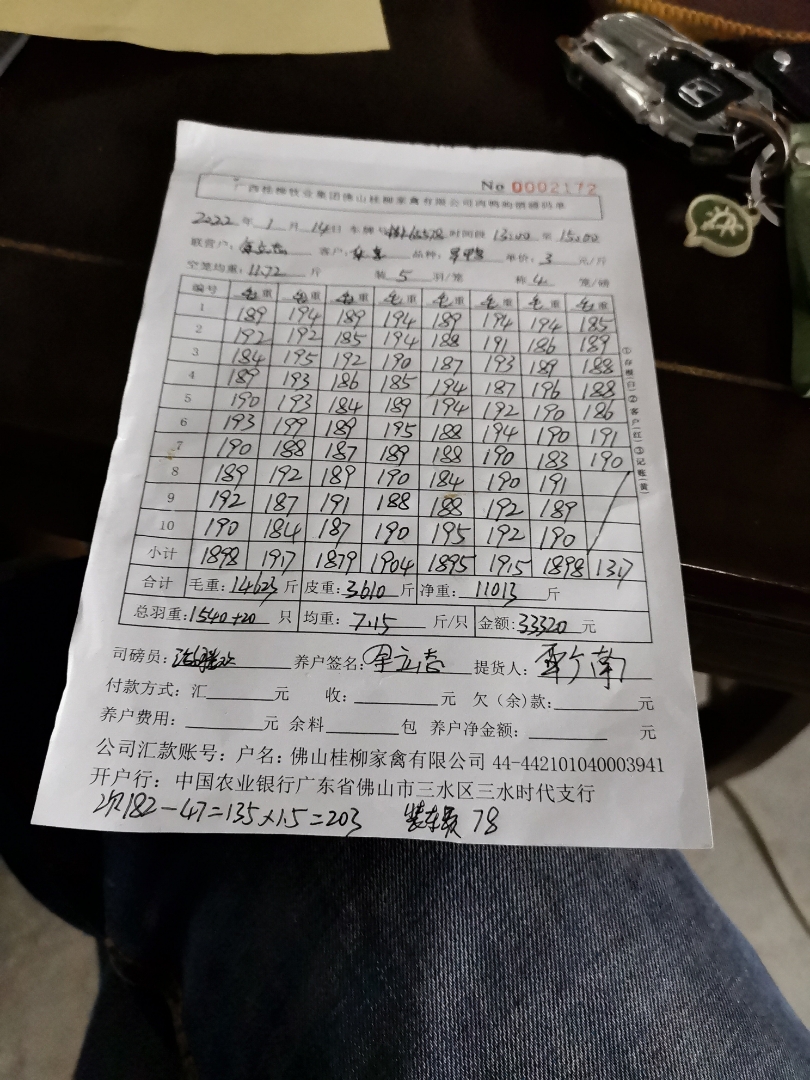 No 0002172
广西桂柳牧业集团佛山桂柳家禽有限公司肉鸭购销磅码单
2022 年 1 月 14日 车牌号 时间段 13:00 至 15:00
联营户: 客户: 品种: 单价: 3 元/斤
空笼均重: 11.72 斤 装 5 羽/笼 称 4 笼/磅
编号 毛重 毛重 毛重 毛重 毛重 毛重 毛重 毛重
1 189 194 189 194 189 194 194 185
2 192 192 185 194 188 191 186 189
3 184 195 192 190 187 193 189 188
4 189 193 186 185 194 187 196 188
5 190 193 184 189 194 192 190 186
6 193 199 189 195 188 194 190 191
7 190 188 187 189 188 190 183 190
8 189 192 189 190 184 190 191
9 192 187 191 188 188 192 189
10 190 184 187 190 195 192 190
小计 1898 1917 1879 1904 1895 1915 1898 1317
合计 毛重: 14623 斤 皮重: 3610 斤 净重: 11013 斤
总羽重: 1540+20 只 均重: 7.15 斤/只 金额: 33320 元
①存根(白)②客户(红)③记账(黄)
司磅员: 养户签名: 提货人:
付款方式: 汇 元 收: 元 欠(余)款: 元
养户费用: 元 余料 包 养户净金额: 元
公司汇款账号: 户名: 佛山桂柳家禽有限公司 44-442101040003941
开户行: 中国农业银行广东省佛山市三水区三水时代支行
次182-47=135×1.5=203 装车费 78